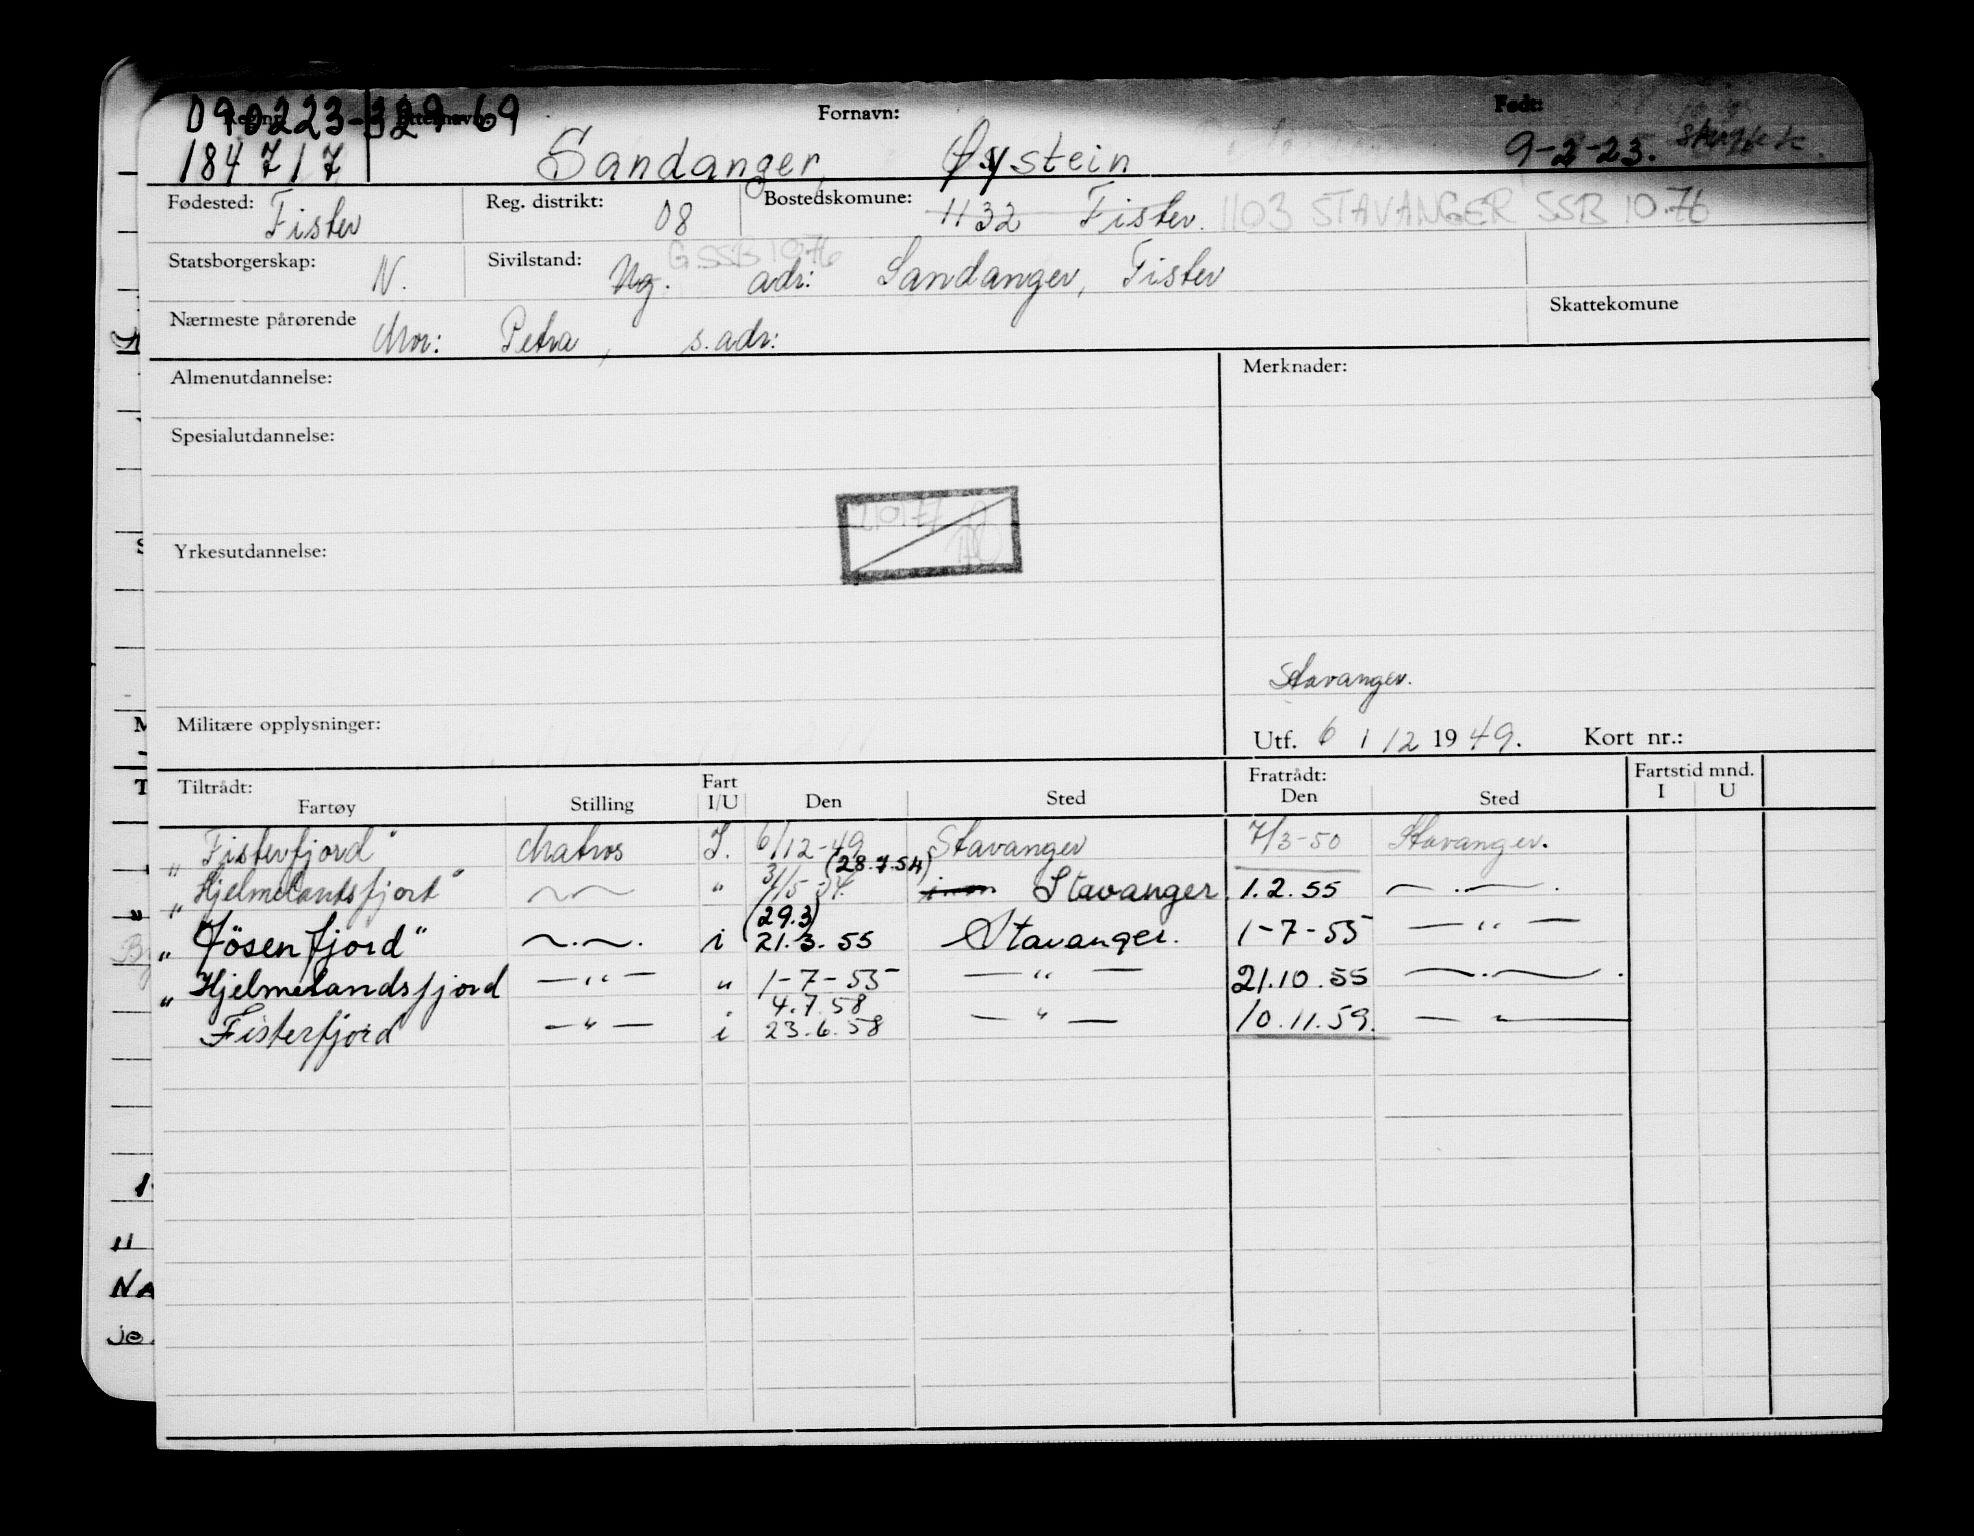 090223-329-69
Reg. nr. Etternavn: Fornavn: Født:
184717 Sandanger, Øystein 9-2-23.
Fødested: Fister Reg. distrikt: 08 Bostedskomune: 1132 Fister. 1103 STAVANGER SSB 10.76
G SSB 1076
Statsborgerskap: N. Sivilstand: Ug. adr: Sandanger, Fister
Nærmeste pårørende Mor: Petra, s. adr: Skattekomune
Almenutdannelse: Merknader:
Spesialutdannelse:
Yrkesutdannelse:
Stavanger.
Militære opplysninger: Utf. 6 / 12 1949. Kort nr.:
Tiltrådt: Fart Fratrådt: Fartstid mnd.
Fartøy Stilling I/U Den Sted Den Sted I U
"Fisterfjord" Matros I. 6/12-49 Stavanger 7/3-50 Stavanger.
(28.7.54)
"Hjelmelandsfjord" " Stavanger 1.2.55
(29.3)
"Jøsenfjord" i 21.3.55 Stavanger. 1-7-55 — " —
"Hjelmelandsfjord — " — " 1-7-55 — " — 21.10.55
4.7.58
Fisterfjord — " — i 23.6.58 — " — 10.11.59. — " —